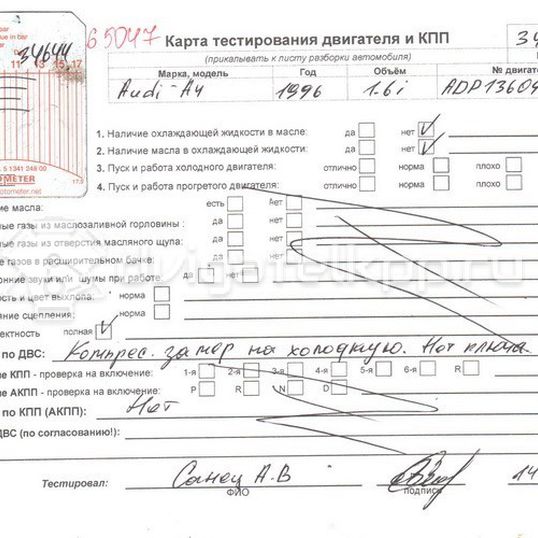 34644
65047
Карта тестирования двигателя и КПП
34
(прикалывать к листу разборки автомобиля)
Марка, модель Год Объём № двигат
Audi-A4 1996 1.6i ADP13604
11 13 15 17
1. Наличие охлаждающей жидкости в масле: да нет
2. Наличие масла в охлаждающей жидкости: да нет
3. Пуск и работа холодного двигателя: отлично норма плохо
4. Пуск и работа прогретого двигателя: отлично норма плохо
5 1341 248 00
OMETER 17.5
otometer.net
ие масла: есть нет
ые газы из маслозаливной горловины: да нет
ые газы из отверстия масляного щупа: да нет
е газов в расширительном бачке: да нет
онние звуки или шумы при работе: да нет
ость и цвет выхлопа: норма
яние сцепления: норма
ектность полная
по ДВС: Компрес. замер на холодную. Нет ключа
ие КПП - проверка на включение: 1-я 2-я 3-я 4-я 5-я 6-я R
ие АКПП - проверка на включение: P R N D
по КПП (АКПП): Нет
ДВС (по согласованию!):
Тестировал: Санец А.В 14
ФИО подпись
Dvigatelkpp.ru